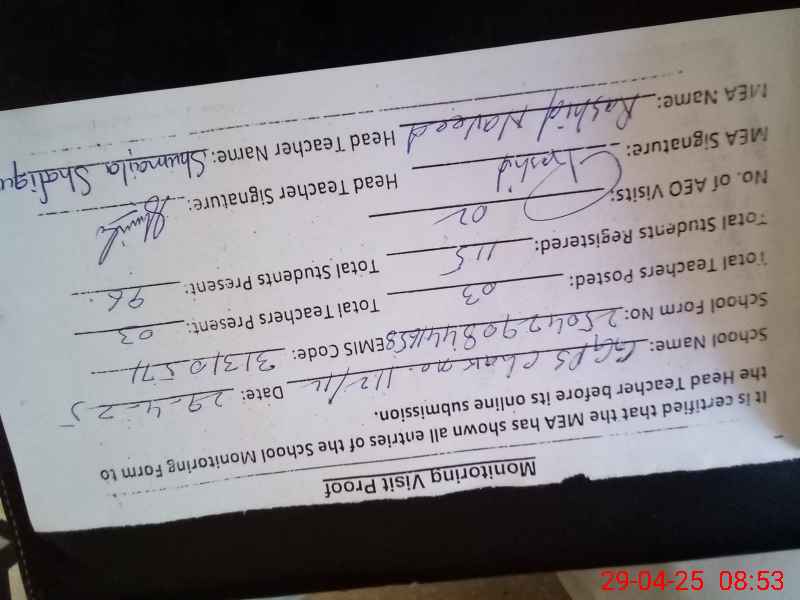 Monitoring Visit Proof
It is certified that the MEA has shown all entries of the School Monitoring Form to
the Head Teacher before its online submission.
School Name: GGPS Chak no. 112/ Date: 29-4-25
School Form No: EMIS Code: 31310571
Total Teachers Posted: 03 Total Teachers Present: 03
Total Students Registered: 115 Total Students Present: 96
No. of AEO Visits: 02
MEA Signature: Rashid Head Teacher Signature:
MEA Name: Rashid Naveed Head Teacher Name: Shumaila Shafique
29-04-25 08:53